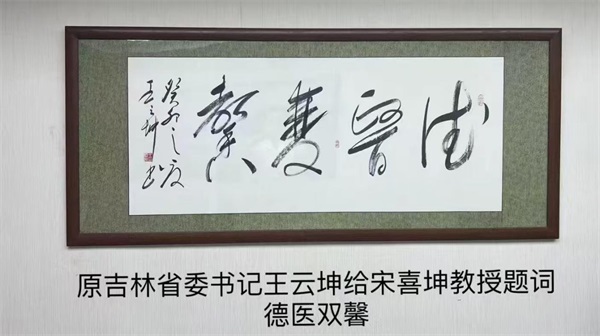 德醫雙馨
癸卯之夏
王云坤
原吉林省委书记王云坤给宋喜坤教授题词
德医双馨